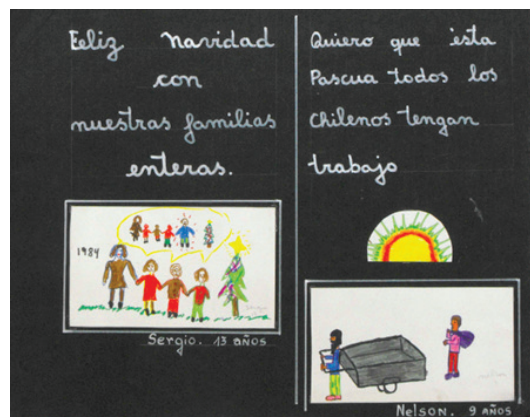 Feliz Navidad
con
nuestras familias
enteras.
1984
Sergio. 13 años
Quiero que ésta
Pascua todos los
chilenos tengan
trabajo
Nelson. 9 años